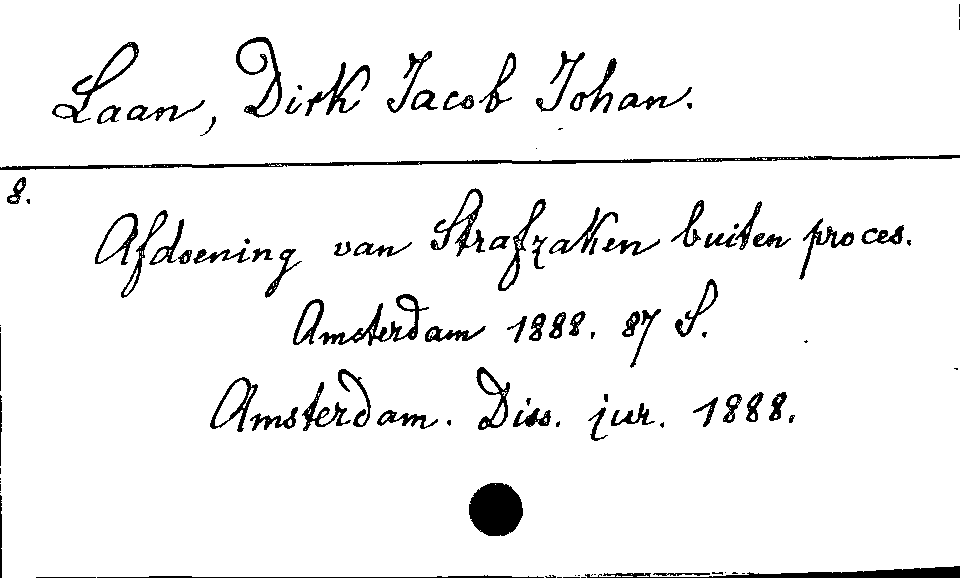 Laan, Dirk Jacob Johan.
8.
Afdoening van Strafzaken buiten proces.
Amsterdam 1888. 87 S.
Amsterdam. Diss. jur. 1888.